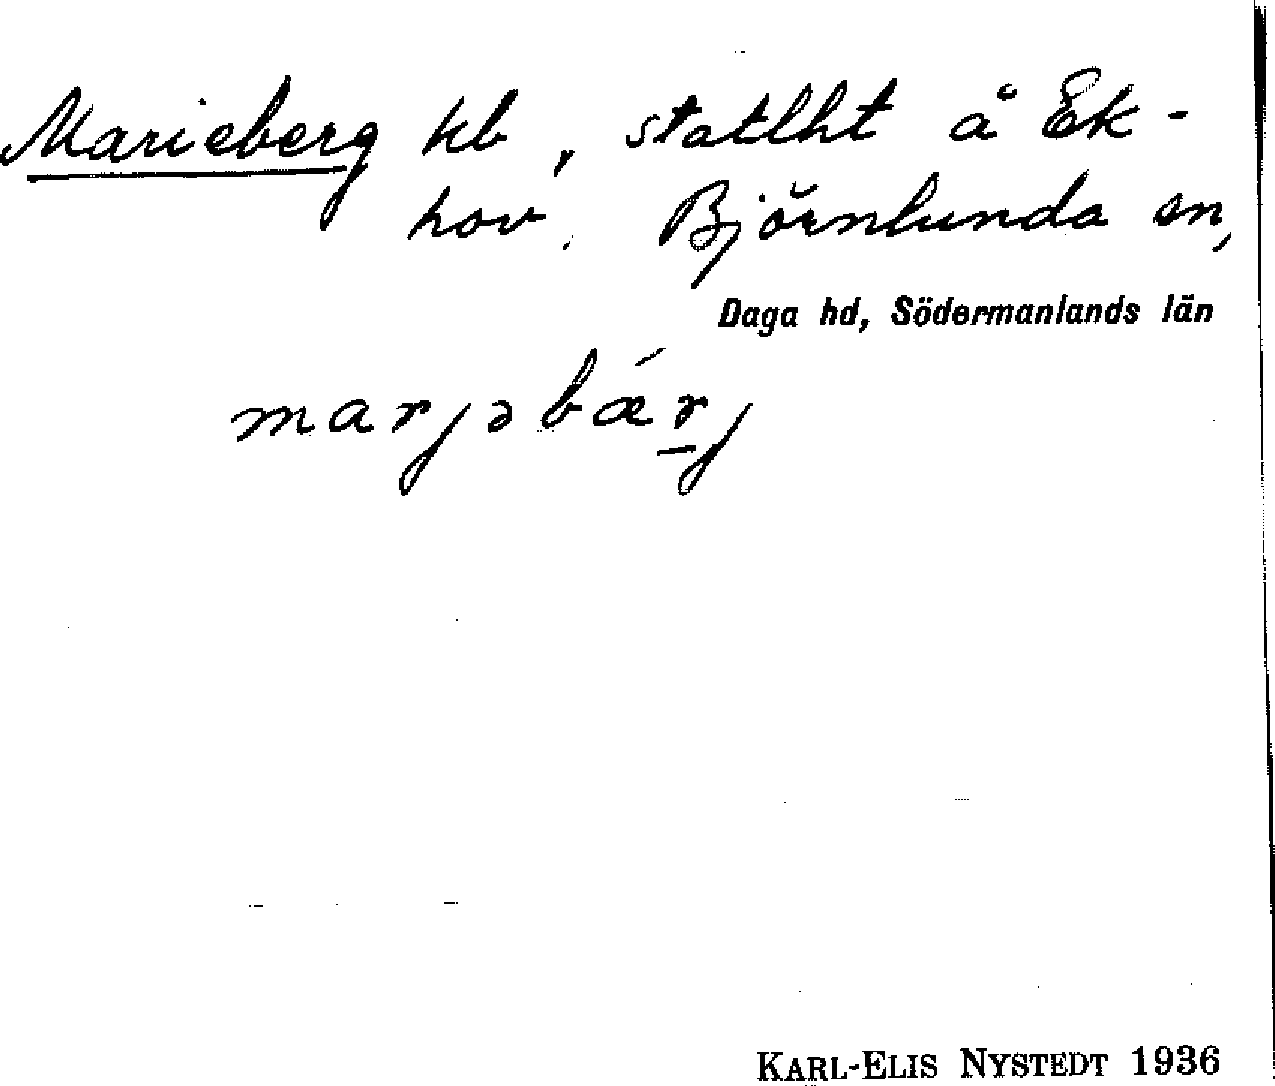 Marieberg kb, statlht å Ek-
hov, Björnlunda sn,
Daga hd, Södermanlands län
marjəbǽrj
KARL-ELIS NYSTEDT 1936